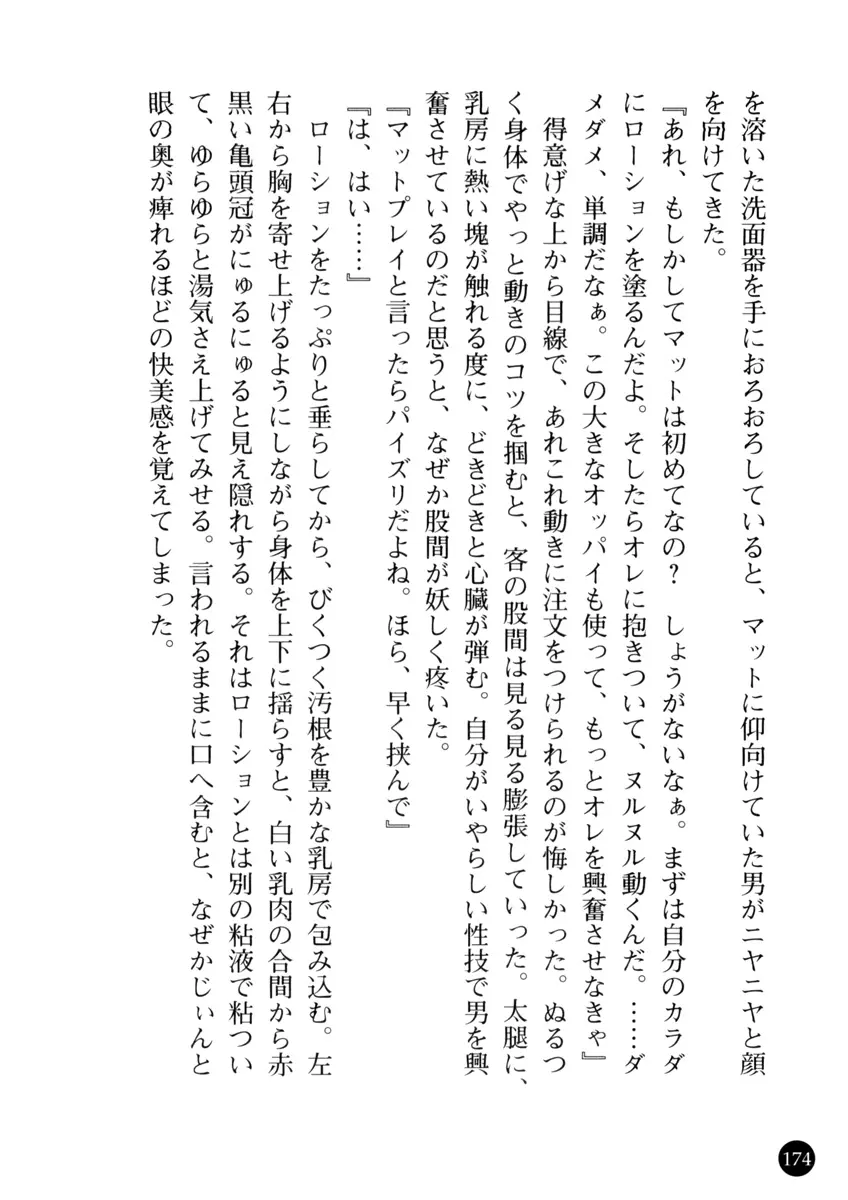 を溶いた洗面器を手におろおろしていると、マットに仰向けていた男がニヤニヤと顔
を向けてきた。
『あれ、もしかしてマットは初めてなの？　しょうがないなぁ。まずは自分のカラダ
にローションを塗るんだよ。そしたらオレに抱きついて、ヌルヌル動くんだ。……ダ
メダメ、単調だなぁ。この大きなオッパイも使って、もっとオレを興奮させなきゃ』
　得意げな上から目線で、あれこれ動きに注文をつけられるのが悔しかった。ぬるつ
く身体でやっと動きのコツを掴むと、客の股間は見る見る膨張していった。太腿に、
乳房に熱い塊が触れる度に、どきどきと心臓が弾む。自分がいやらしい性技で男を興
奮させているのだと思うと、なぜか股間が妖しく疼いた。
『マットプレイと言ったらパイズリだよね。ほら、早く挟んで』
『は、はい……』
　ローションをたっぷりと垂らしてから、びくつく汚根を豊かな乳房で包み込む。左
右から胸を寄せ上げるようにしながら身体を上下に揺らすと、白い乳肉の合間から赤
黒い亀頭冠がにゅるにゅると見え隠れする。それはローションとは別の粘液で粘つい
て、ゆらゆらと湯気さえ上げてみせる。言われるままに口へ含むと、なぜかじぃんと
眼の奥が痺れるほどの快美感を覚えてしまった。
174